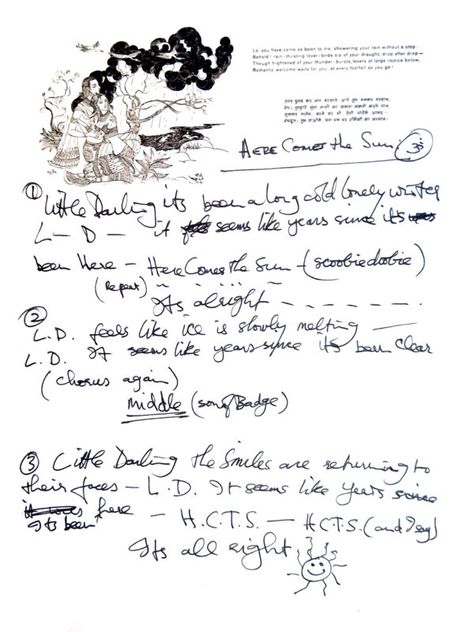 Lo, you have come as boon to me, showering your rain without a stop.
Behold! rain-thirsting lover-birds sip of your draught, drop after drop—
Though frightened of your thunder-bursts, lovers at large rejoice below,
Romantic welcome waits for you, at every footfall as you go!
HERE COMES THE SUN ॐ
① Little Darling its been a long cold lonely winter
L — D — it seems like years since its
been Here — Here Comes the Sun — (scoobie doobie)
(Repeat)
Its alright — — — — — —
② L.D. feels like ice is slowly melting —
L.D. It seems like years since its been clear
(chorus again)
Middle (son of Badge)
③ Little Darling the Smiles are returning to
their faces — L.D. It seems like years since
Its been here — H.C.T.S. — H.C.T.S. (and I say)
Its all right